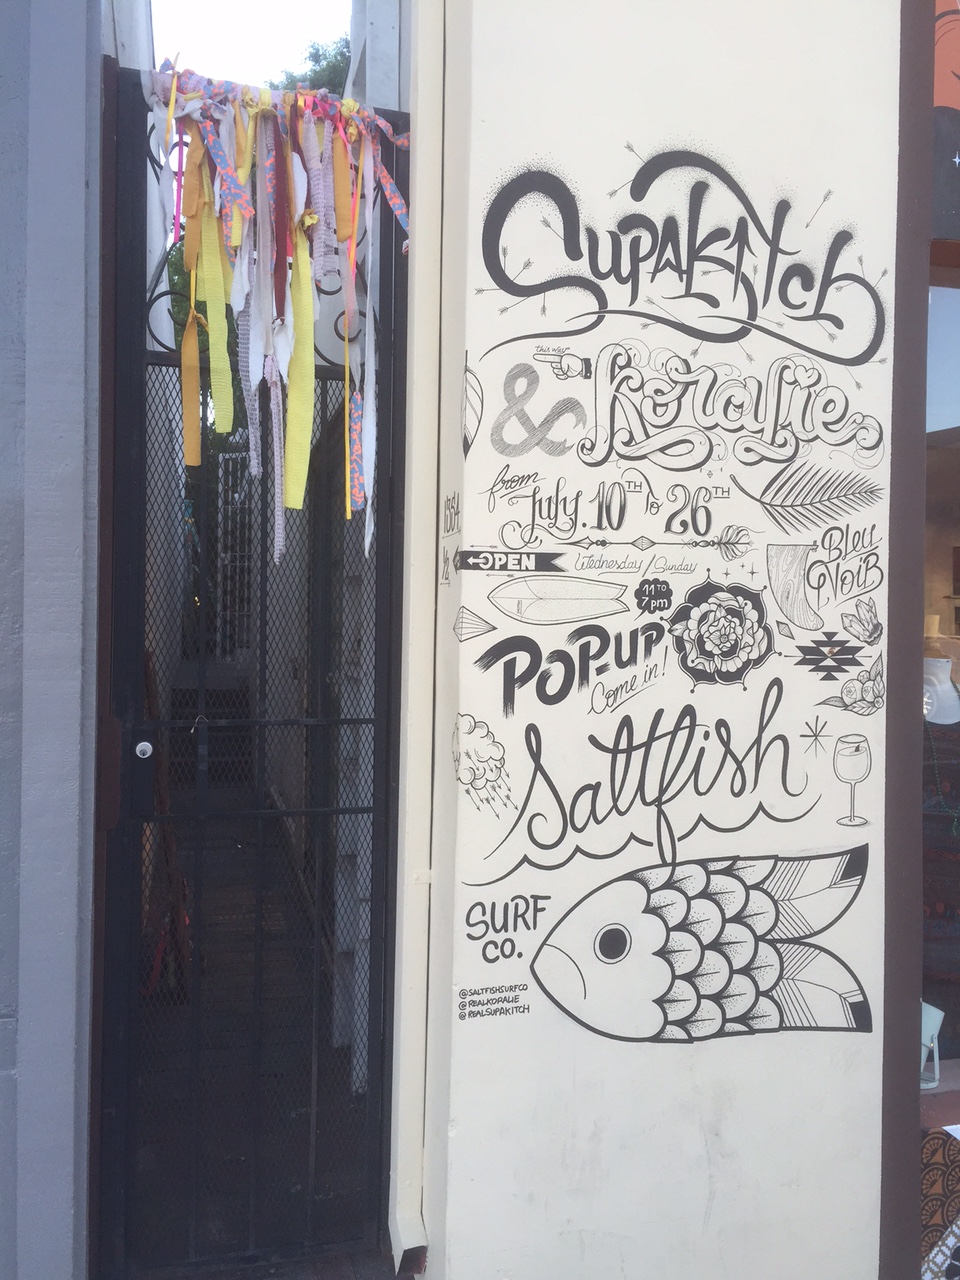 SUPAKITCH
this way
& Koralie
from July. 10TH to 26TH
OPEN Wednesday / Sunday
11 TO 7 pm
BLEU NOIR
POP-UP
Come in!
Saltfish
SURF
CO.
@SALTFISHSURFCO
@REALKORALIE
@REALSUPAKITCH